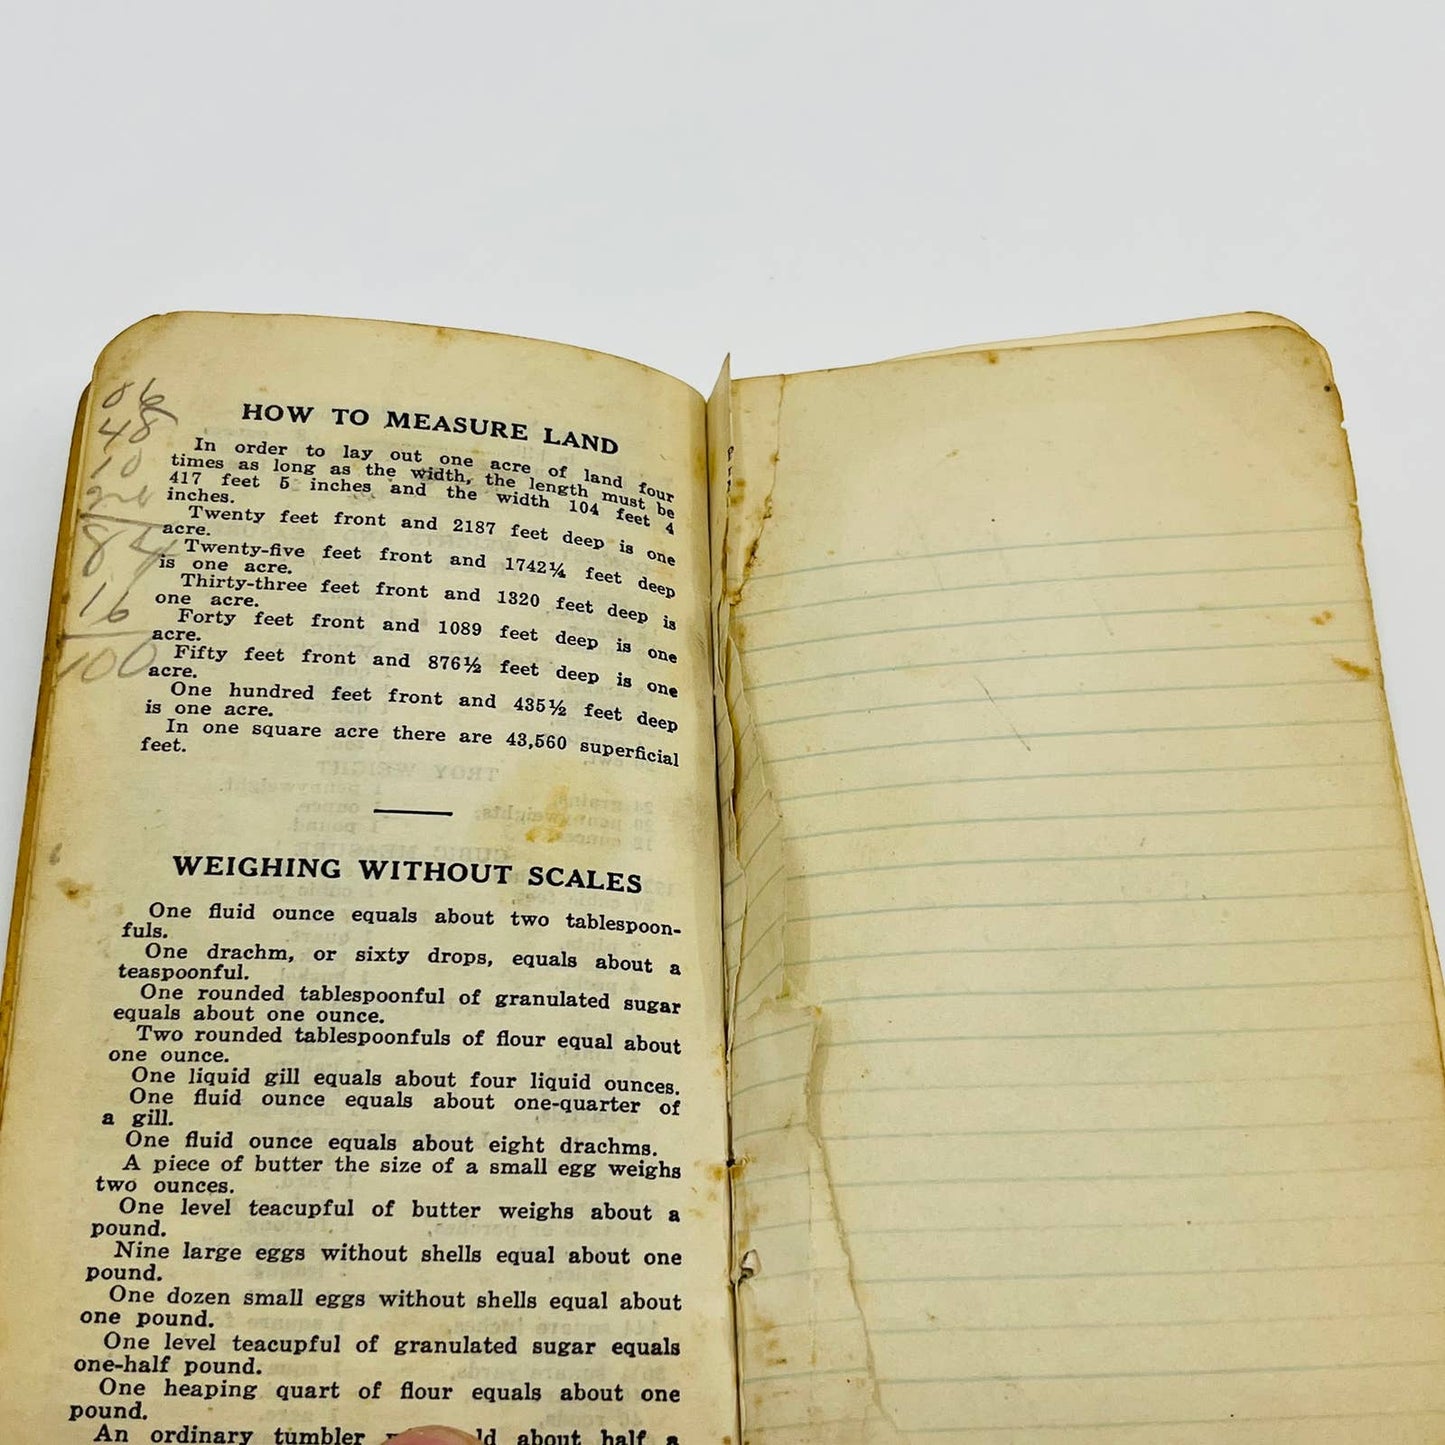 06
48
10
84
16
100
HOW TO MEASURE LAND
In order to lay out one acre of land four
times as long as the width, the length must be
417 feet 5 inches and the width 104 feet 4
inches.
Twenty feet front and 2187 feet deep is one
acre.
Twenty-five feet front and 1742¼ feet deep
is one acre.
Thirty-three feet front and 1320 feet deep is
one acre.
Forty feet front and 1089 feet deep is one
acre.
Fifty feet front and 876½ feet deep is one
acre.
One hundred feet front and 435½ feet deep
is one acre.
In one square acre there are 43,560 superficial
feet.
WEIGHING WITHOUT SCALES
One fluid ounce equals about two tablespoon-
fuls.
One drachm, or sixty drops, equals about a
teaspoonful.
One rounded tablespoonful of granulated sugar
equals about one ounce.
Two rounded tablespoonfuls of flour equal about
one ounce.
One liquid gill equals about four liquid ounces.
One fluid ounce equals about one-quarter of
a gill.
One fluid ounce equals about eight drachms.
A piece of butter the size of a small egg weighs
two ounces.
One level teacupful of butter weighs about a
pound.
Nine large eggs without shells equal about one
pound.
One dozen small eggs without shells equal about
one pound.
One level teacupful of granulated sugar equals
one-half pound.
One heaping quart of flour equals about one
pound.
An ordinary tumbler about half a